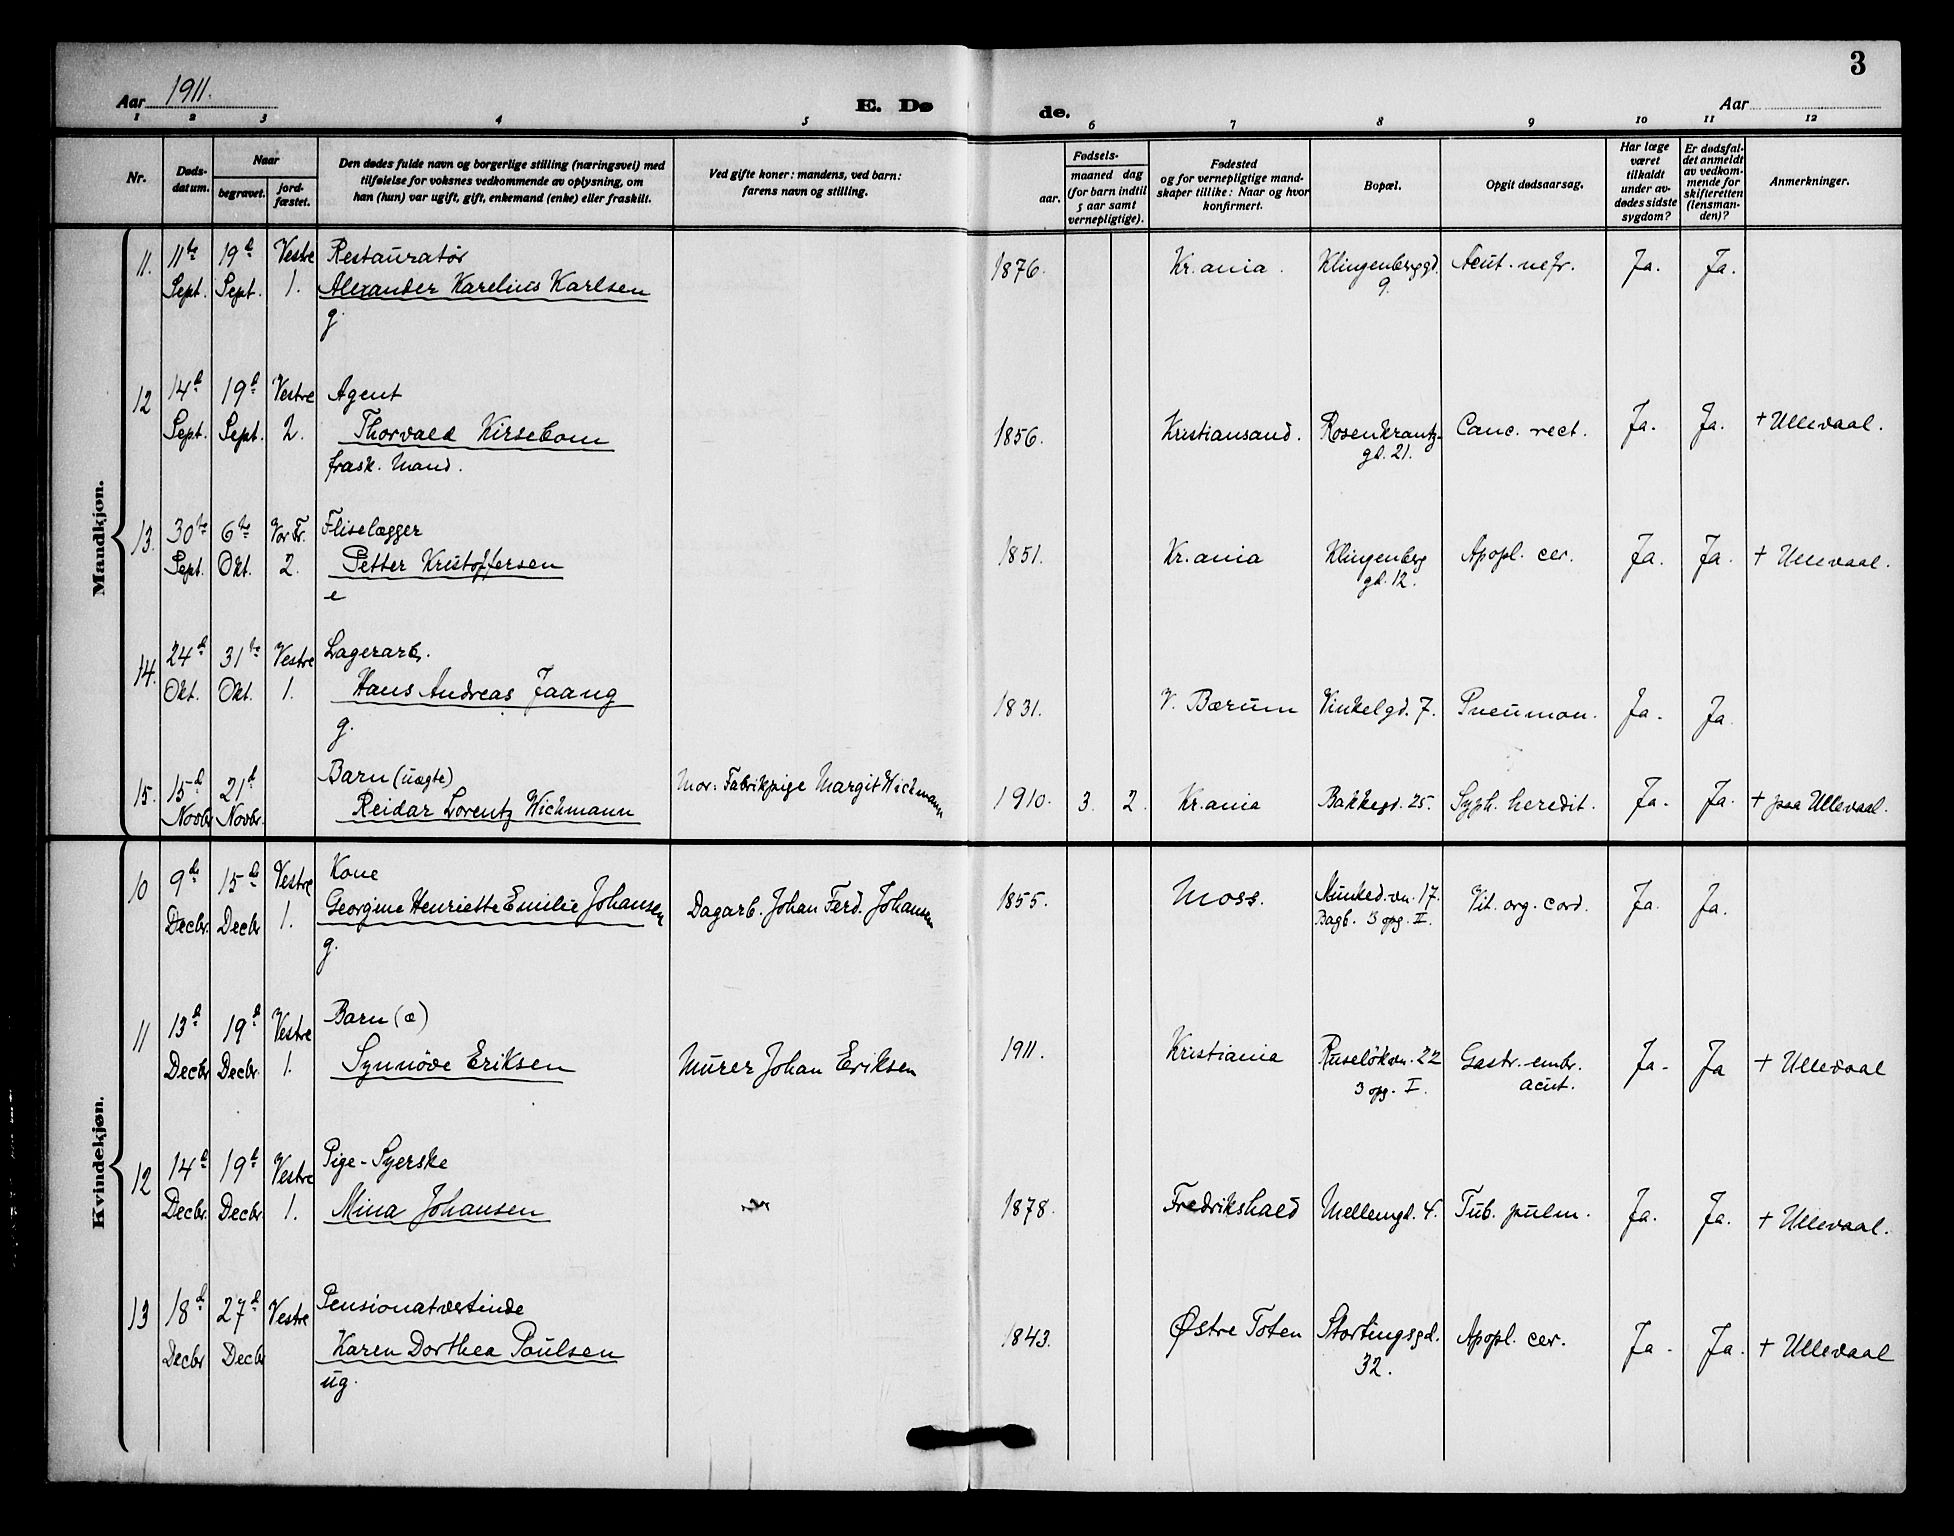 3
Aar 1911.
E. Dø
de.
Aar
1 2 3 4 5 6 7 8 9 10 11 12
Nr.
Døds-
datum.
Naar
begravet.
jord-
fæstet.
Den dødes fulde navn og borgerlige stilling (næringsvei) med
tilføielse for voksnes vedkommende av oplysning, om
han (hun) var ugift, gift, enkemand (enke) eller fraskilt.
Ved gifte koner: mandens, ved barn:
farens navn og stilling.
Fødsels-
aar.
maaned dag
(for barn indtil
5 aar samt
vernepligtige).
Fødested
og for vernepligtige mand-
skaper tillike: Naar og hvor
konfirmert.
Bopæl.
Opgit dødsaarsag.
Har læge
været
tilkaldt
under av-
dødes sidste
sygdom?
Er dødsfal-
det anmeldt
av vedkom-
mende for
skifteretten
(lensman-
den)?
Anmerkninger.
Mandkjøn.
11. 11te 19d Vestre Restauratør
Sept. Sept. 1. Alexander Karelius Karlsen 1876. Kr.ania. Klingenberggd. Acut. nefr. Ja. Ja.
g. 9.
12 14d 19d Vestre Agent
Sept. Sept. 2. Thorvald Kirsebom 1856. Kristiansand. Rosenkrantz- Canc. rect. Ja. Ja. + Ullevaal.
frask. Mand. gd. 21.
13. 30te 6te Vor Fr. Fliselægger
Sept. Okt. 2. Petter Kristoffersen 1851. Kr.ania Klingenberg Apopl. cer. Ja. Ja. + Ullevaal.
e gd. 12.
14. 24d 31te Vestre Lagerarb.
Okt. Okt. 1. Hans Andreas Jaang 1831. V. Bærum Vinkelgd. 7. Pneumon. Ja. Ja.
g.
15. 15d 21d Barn (uægte) Mor: Fabrikpige Margit Wichmann
Novbr Novbr. Reidar Lorentz Wichmann 1910. 3. 2. Kr.ania Bakkegd. 25. Syph. heredit. Ja. Ja. + paa Ullevaal.
Kvindekjøn.
10 9de 15de Vestre Kone
Decbr. Decbr 1. Georgine Henriette Emilie Johansen Dagarb. Johan Ferd. Johansen 1855. Moss. Munked.vn. 17. Vit. org. cord. Ja. Ja.
g. Bagb. 3 opg. II.
11 13d 19d Vestre Barn (æ)
Decbr Decbr. 1. Synnöve Eriksen Murer Johan Eriksen 1911. Kristiania Ruselökvn. 22 Gastr.-embr. Ja. Ja + Ullevaal
3 opg. I. acut.
12 14d 19d Vestre Pige - Syerske
Decbr. Decbr 1. Mina Johansen 1878. Fredrikshald Mellemgd. 4. Tub. pulm. Ja. Ja. + Ullevaal.
13 18d 27d Vestre Pensionatvertinde
Decbr Decbr Karen Dorthea Poulsen 1843. Østre Toten Stortingsgd. Apopl. cer. Ja. Ja. + Ullevaal
ug. 32.